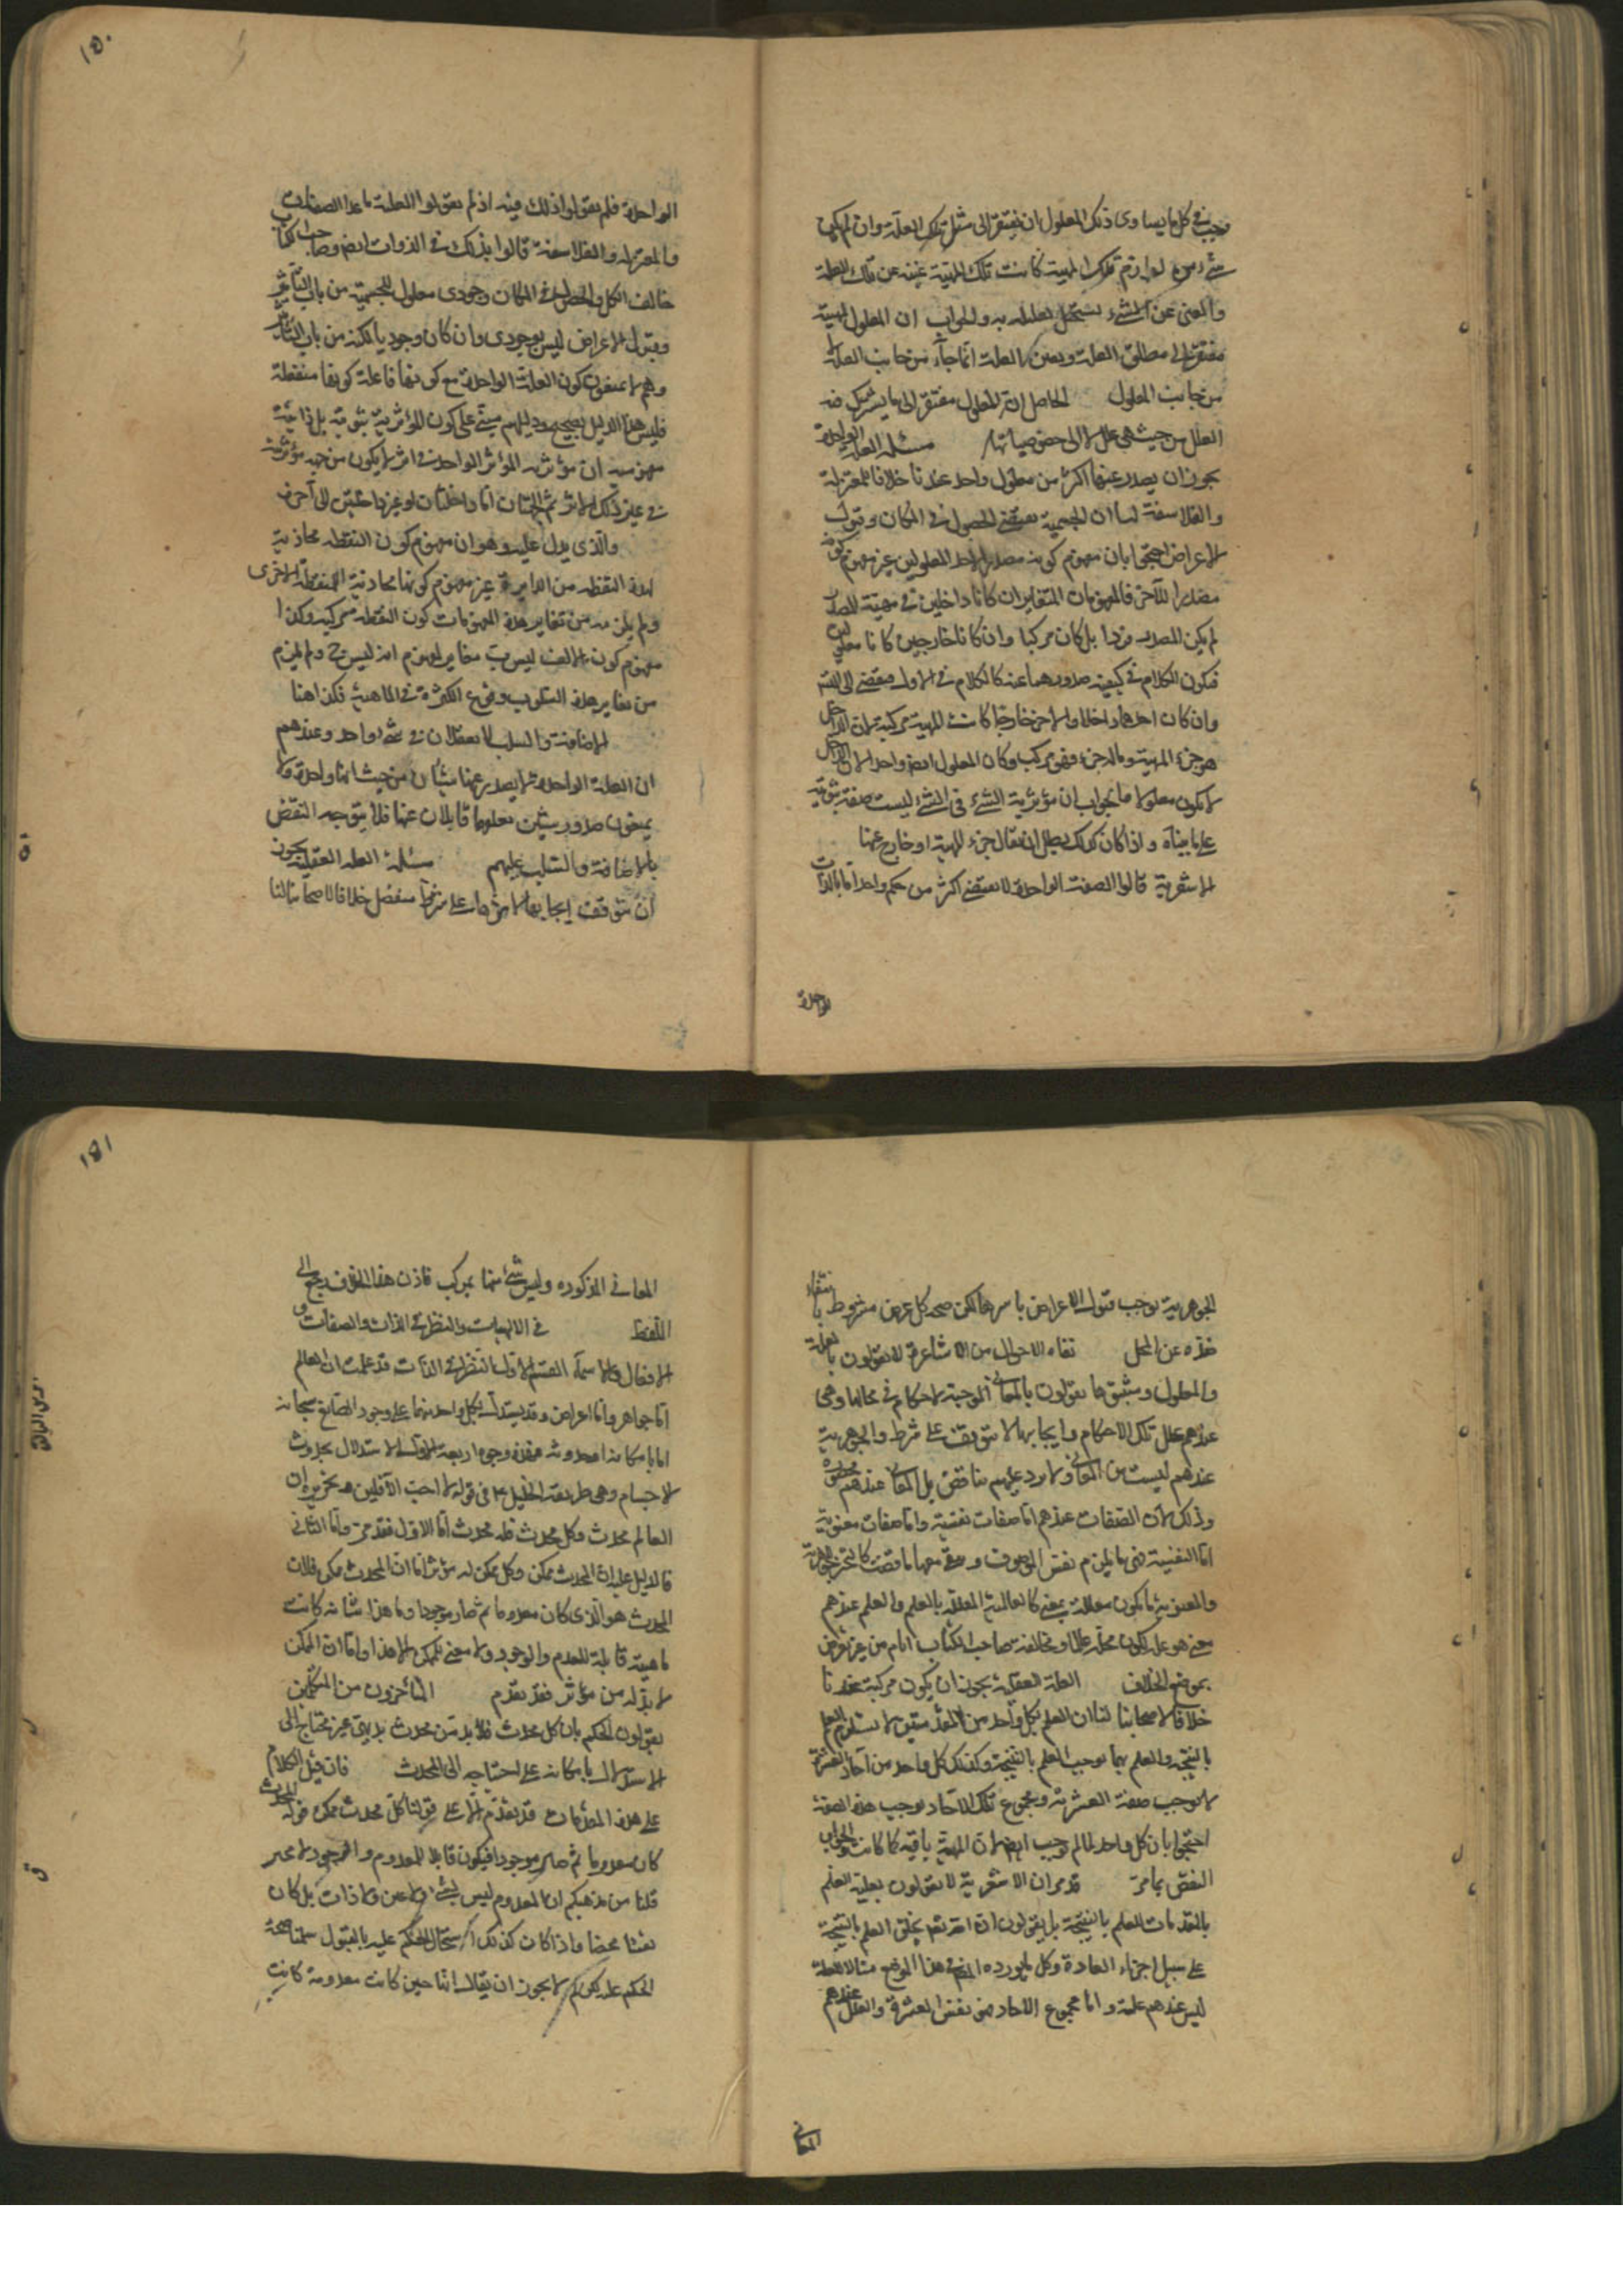 وجب في كل ما يساوى ذلك المعلول ان يفتقر الى مثل تلك العلة وان لم يكن
شئ من لوازم تلك المهية كانت تلك المهية غنية عن تلك العلة
والغنى عن الشئ يستحيل تعليله به والجواب ان المعلول لمهيته
مفتقر الى مطلق العلة وتعين العلة انما جاء من جانب العلة لا
من جانب المعلول الحاصل ان المعلول مفتقر الى ما يشترك فيه
العلل من حيث هي علل لا الى خصوصياتها مسئلة العلة الواحدة
يجوز ان يصدر عنها اكثر من معلول واحد عندنا خلافا للمعتزلة
والفلاسفة لنا ان الجسمية تقتضى الحصول في المكان وقبول
الاعراض احتجوا بان مفهوم كونه مصدرا لاحد المعلولين غير مفهوم كونه
مصدرا للآخر فالمفهومان المتغايران ان كانا داخلين في مهية المصدر
لم يكن المصدر فردا بل كان مركبا وان كانا خارجين كانا معلولين
فيكون الكلام في كيفية صدورهما عنه كالكلام في الاول فيفضى الى التس
وان كان احدهما داخلا والاخر خارجا كانت المهية مركبة لان الداخل
هو جزء المهية وماله جزء فهو مركب وكان المعلول ايضا واحدا لان الداخل
لا يكون معلولا والجواب ان مؤثرية الشئ في الشئ ليست صفة ثبوتية
على ما بيناه واذا كان كذلك بطل ان يقال جزء المهية او خارج عنها
الاشعرية قالوا الصفة الواحدة لا تقتضى اكثر من حكم واحد اما بالذات
الواحدة
الواحدة فلم يقولوا ذلك فيه اذ لم يقولوا بالعلة ما عدا الصفات
والمعتزلة والفلاسفة قالوا بذلك في الذوات ايضا وصاحب الكتاب
خالف الكل والحصول في المكان وجودى معلول للجسمية من باب التأثير
وقبول الاعراض ليس بوجودى وان كان وجوديا لكنه من باب التأثر
وهم لا يمنعون كون العلة الواحدة مع كونها فاعلة كونها منفعلة
فليس هذا الدليل بصحيح ودليلهم مبنى على كون المؤثرية ثبوتية بل
ان مؤثرية المؤثر الواحد في اثر لا يكون من جهة مؤثريته
في غير ذلك الاثر ثم الجهتان اما داخلتان او غير داخلتين الى آخره
والذى يدل عليه هو ان مفهوم كون النقطة محاذية
لهذه النقطة من الدايرة غير مفهوم كونها محاذية للنقطة الاخرى
ولم يلزم من تغاير هذه المفهومات كون النقطة مركبة وكذا
مفهوم كون الالف ليس ب مغاير لمفهوم انه ليس ج ولم يلزم
من تغاير هذه السلوب وقوع الكثرة في الماهية فكذا هنا
الاضافة والسلب لا يعقلان في شئ واحد وعندهم
ان العلة الواحدة لا يصدر عنها شيئان من حيث انها واحدة ولا
يمنعون صدور شيئين معلولها قابلان عنها فلا يتوجه النقض
بالاضافة والسلب عليهم مسئلة العلة العقلية يجوز
ان يتوقف ايجابها لاثرها على شرط منفصل خلافا لاصحابنا لنا
١٥٠
الجوهرية توجب قبول الاعراض باسرها لكن صحة كل عرض مشروط بانتفاء
ضده عن المحل نفاة الاحوال من الاشاعرة لا يقولون بالعلة
والمعلول ومثبتوها يقولون بالمعانى الموجبة لاحكام في محالها وهى
عندهم علل تلك الاحكام وايجابها لا يتوقف على شرط والجوهرية
عندهم ليست من المعانى ولا يرد عليهم مناقض بل المعانى عندهم
وذلك لان الصفات عندهم اما صفات نفسية واما صفات معنوية
اما النفسية فهى ما يلزم نفس الموصوف كالتحيز للجوهرية
والمعنوية ما يكون معللة بمعنى كالعالمية المعللة بالعلم والعلم عندهم
معنى هو علة لكون محله عالما ومخالفة صاحب الكتاب اياهم من غير تعرض
بموضع الخلاف العلة العقلية يجوز ان يكون مركبة عندنا
خلافا لاصحابنا لنا ان العلم بكل واحد من المقدمتين لا يستلزم العلم
بالنتيجة والعلم بهما يوجب العلم بالنتيجة وكذلك كل واحد من آحاد العشرة
لا يوجب صفة العشرية ومجموع تلك الآحاد يوجب هذه الصفة
احتجوا بان كل واحد لما لم يوجب ايضا لان المهية باقية كما كانت والجواب
النقض بما مر قد مر ان الاشعرية لا يقولون بعلية العلم
بالمقدمات للعلم بالنتيجة بل يقولون ان الله تعالى يخلق العلم بالنتيجة
على سبيل اجراء العادة وكل ما يورده المص في هذا الموضع مثالا للعلة
ليس عندهم علة واما مجموع الآحاد فهى نفس العشرة والعلل عندهم
المعانى
المعانى المذكورة وليس شئ منها بمركب فاذن هذا الخلاف يرجع الى
اللفظ في الالهيات والنظر في الذات والصفات و
الافعال والاسماء القسم الاول النظر في الذات قد علمت ان العالم
اما جواهر واما اعراض وقد يستدل بكل واحد منهما على وجود الصانع سبحانه
اما بامكانه او حدوثه فهذه وجوه اربعة الاول الاستدلال بحدوث
الاجسام وهى طريقة الخليل ع في قوله لا احب الآفلين تحريره ان
العالم محدث وكل محدث فله محدث اما الاول فقد مر واما الثانى
فالدليل عليه ان المحدث ممكن وكل ممكن له مؤثر اما ان المحدث ممكن فلان
المحدث هو الذى كان معدوما ثم صار موجودا وما هذا شانه كانت
ماهيته قابلة للعدم والوجود ولا معنى للممكن الا هذا واما ان الممكن
لا بد له من مؤثر فقد تقدم المتأخرون من المتكلمين
يقولون الحكم بان كل محدث فلا بد من محدث بديهى غير محتاج الى
الاستدلال بامكانه على احتياجه الى المحدث فان قيل الكلام
على هذه المقدمات قد تقدم الا على قولنا كل محدث ممكن قوله المحدث
كان معدوما ثم صار موجودا فيكون قابلا للعدم والوجود
قلنا من مذهبكم ان المعدوم ليس بشئ ولا عين ولا ذات بل كان
نفيا محضا واذا كان كذلك استحال الحكم عليه بالقبول سلمنا صحة
الحكم عليه لكن لم لا يجوز ان يقال انها حين كانت معدومة كانت
١٥١